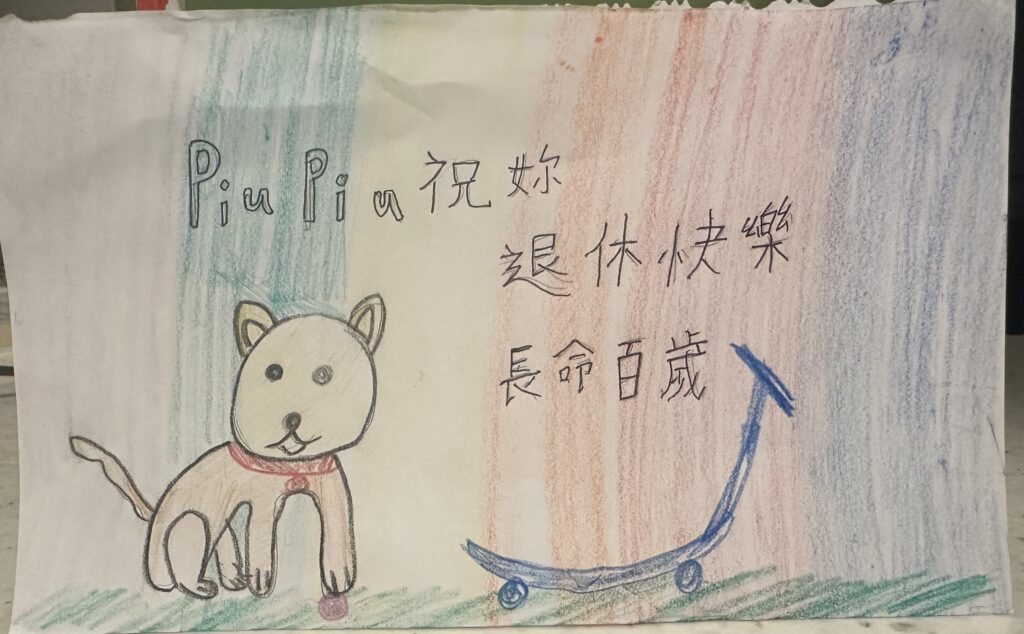 Piu Piu 祝妳
退休快樂
長命百歲